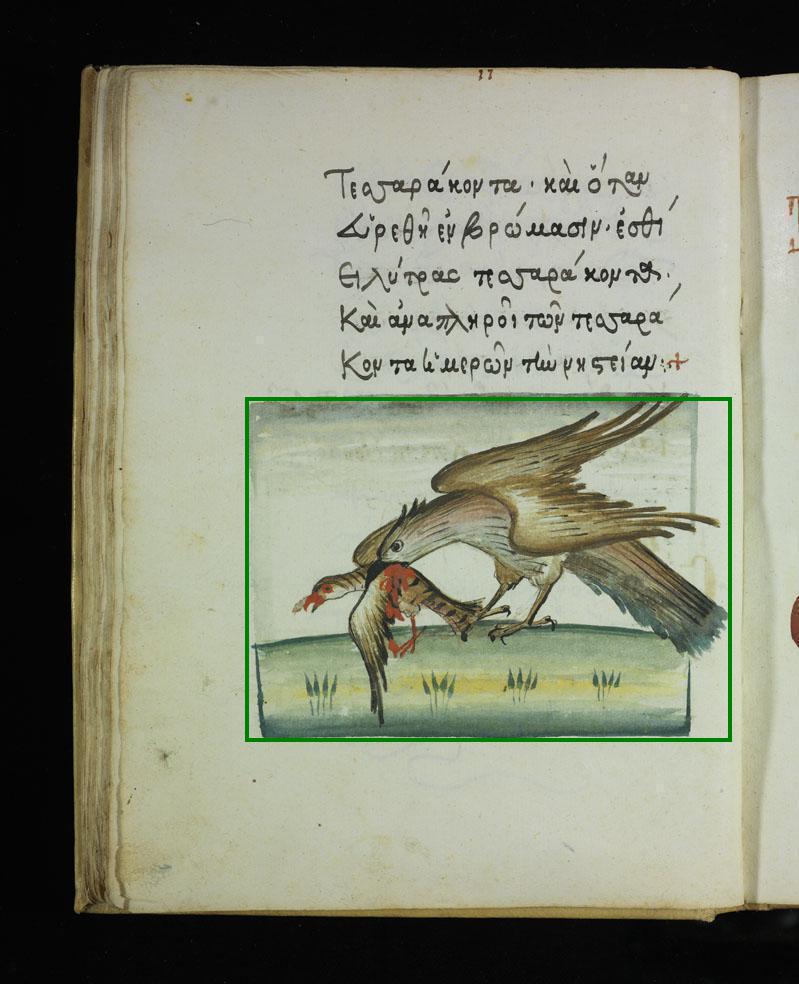 Τεσσαράκοντα· καὶ ὅταν
εὑρεθῆ ἐν βρώμασιν· ἐσθί
ει λύτρας τεσσαράκοντα·
Καὶ ἀναπληροῖ τῶν τεσσαρά
Κοντα ἡμερῶν τὴν νηστείαν:+